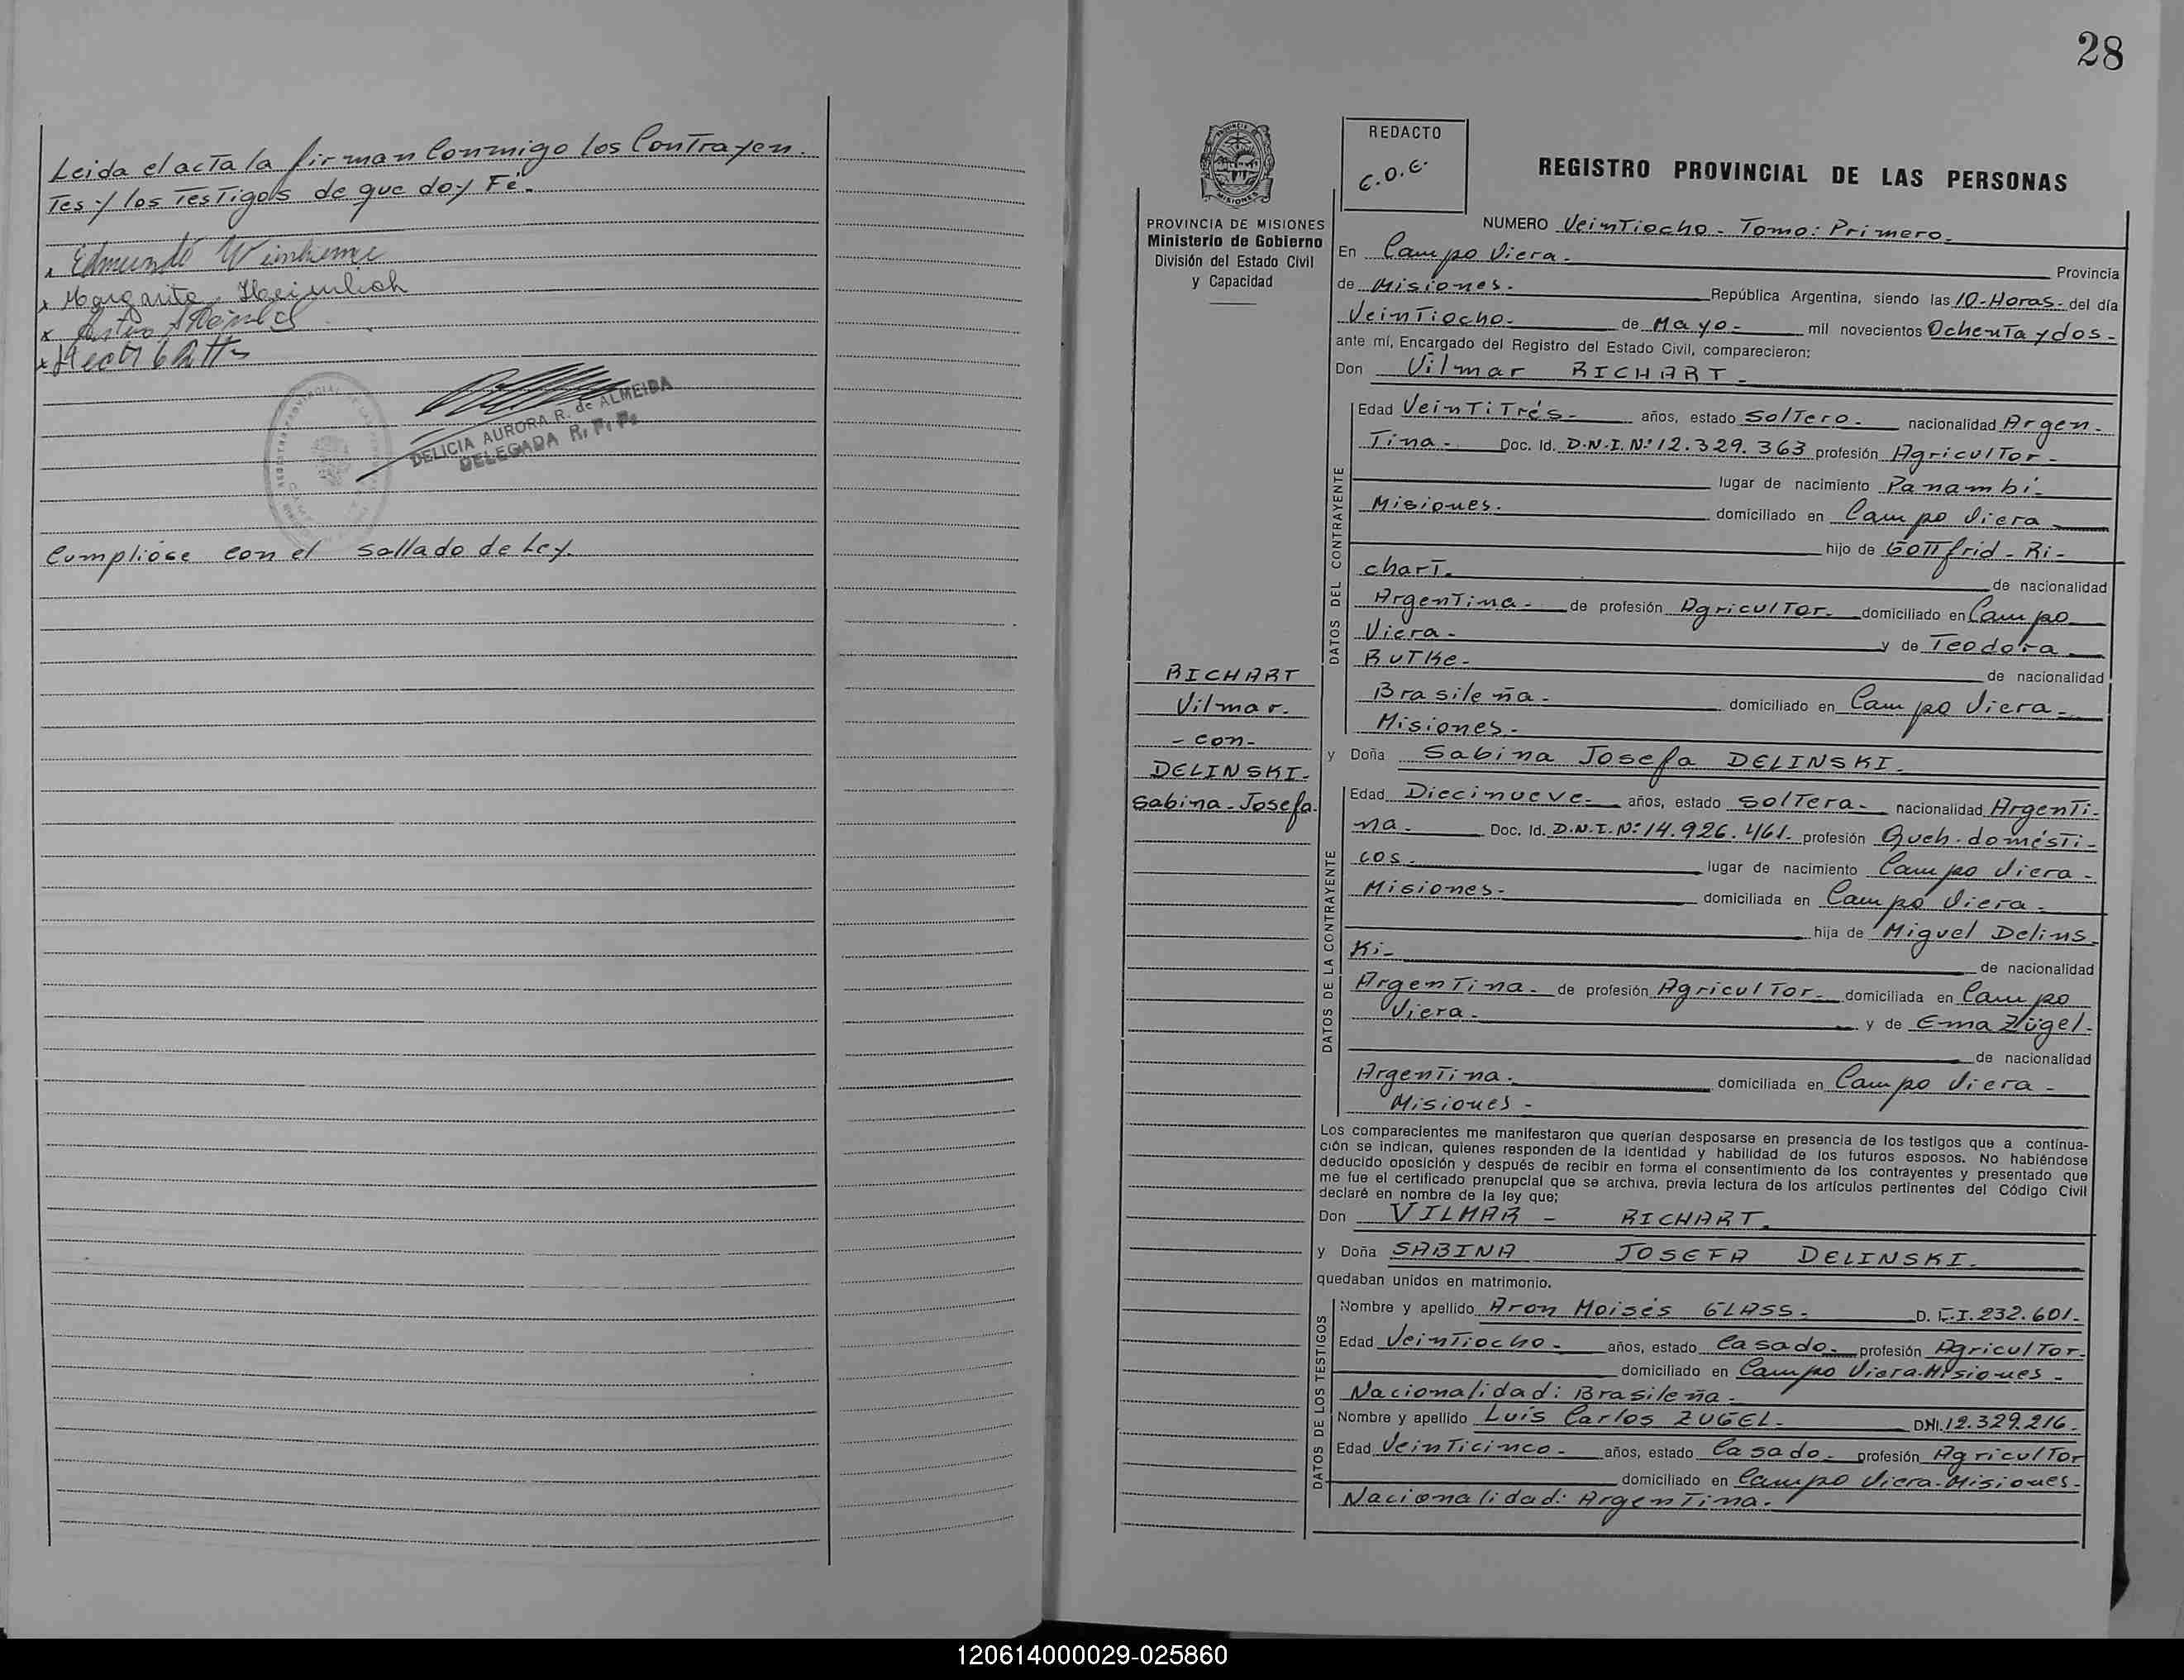 Leida el acta la firman Conmigo los Contrayen-
Tes y los TesTigos de que doy Fé.
Edmundo
Margarita Heimlich
DELICIA AURORA R. de ALMEIDA
DELEGADA R. P. P.
Cumplióse con el sellado de Ley.
28
REDACTO
C.O.E.
REGISTRO PROVINCIAL DE LAS PERSONAS
PROVINCIA DE MISIONES
Ministerio de Gobierno
División del Estado Civil
y Capacidad
NUMERO VeinTiocho - Tomo: Primero.
En Campo Viera. Provincia
de Misiones. República Argentina, siendo las 10-Horas- del día
VeinTiocho- de Mayo- mil novecientos OchenTa y dos-
ante mí, Encargado del Registro del Estado Civil, comparecieron:
Don Vilmar RICHART-
DATOS DEL CONTRAYENTE
Edad VeinTiTrés- años, estado SolTero- nacionalidad Argen-
Tina- Doc. Id. D.N.I. Nº 12.329.363 profesión AgriculTor-
lugar de nacimiento Panambí-
Misiones. domiciliado en Campo Viera
hijo de GoTTfrid - Ri-
charT. de nacionalidad
ArgenTina- de profesión AgriculTor- domiciliado en Campo
Viera- y de Teodora
RuTke- de nacionalidad
Brasileña- domiciliado en Campo Viera-
Misiones-
RICHART
Vilmar.
- con -
DELINSKI-
Sabina-Josefa.
y Doña Sabina Josefa DELINSKI-
DATOS DE LA CONTRAYENTE
Edad Diecinueve- años, estado SolTera- nacionalidad ArgenTi-
na- Doc. Id. D.N.I. Nº 14.926.461- profesión Queh. domésTi-
cos. lugar de nacimiento Campo Viera-
Misiones- domiciliada en Campo Viera-
hija de Miguel Delins
Ki- de nacionalidad
ArgenTina- de profesión AgriculTor- domiciliada en Campo
Viera- y de Ema Zügel-
de nacionalidad
ArgenTina. domiciliada en Campo Viera-
Misiones-
Los comparecientes me manifestaron que querían desposarse en presencia de los testigos que a continua-
ción se indican, quienes responden de la identidad y habilidad de los futuros esposos. No habiéndose
deducido oposición y después de recibir en forma el consentimiento de los contrayentes y presentado que
me fue el certificado prenupcial que se archiva, previa lectura de los artículos pertinentes del Código Civil
declaré en nombre de la ley que;
Don VILMAR - RICHART.
y Doña SABINA JOSEFA DELINSKI-
quedaban unidos en matrimonio.
DATOS DE LOS TESTIGOS
Nombre y apellido Aron Moisés GLASS- D. C.I. 232.601-
Edad VeinTiocho- años, estado Casado- profesión AgriculTor-
domiciliado en Campo Viera-Misiones-
Nacionalidad: Brasileña-
Nombre y apellido Luis Carlos ZUGEL- DNI. 12.329.216-
Edad VeinTicinco- años, estado Casado- profesión AgriculTor
domiciliado en Campo Viera-Misiones-
Nacionalidad: ArgenTina.
120614000029-025860